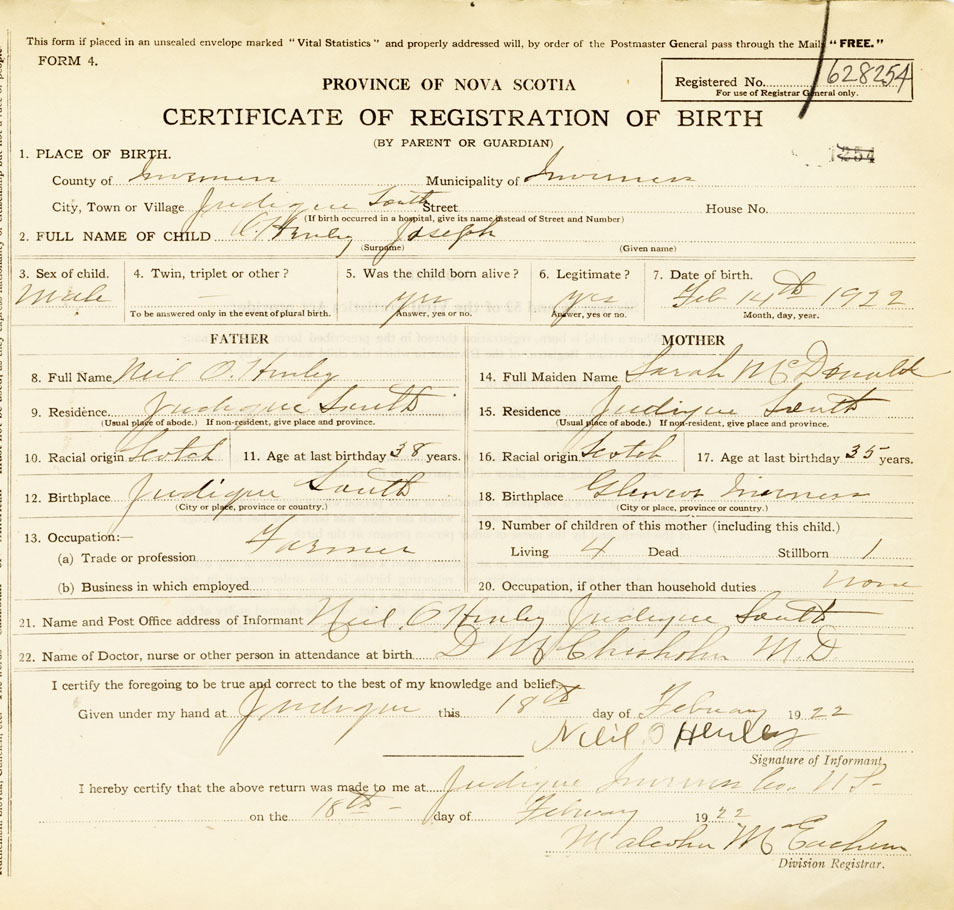 This form if placed in an unsealed envelope marked "Vital Statistics" and properly addressed will, by order of the Postmaster General pass through the Mail, "FREE."
FORM 4.
Registered No. 628254
For use of Registrar General only.
PROVINCE OF NOVA SCOTIA
CERTIFICATE OF REGISTRATION OF BIRTH
(BY PARENT OR GUARDIAN)
254
1. PLACE OF BIRTH.
County of Inverness Municipality of Inverness
City, Town or Village Judique South Street House No.
(If birth occurred in a hospital, give its name instead of Street and Number)
2. FULL NAME OF CHILD O'Henley Joseph
(Surname) (Given name)
3. Sex of child. 4. Twin, triplet or other? 5. Was the child born alive? 6. Legitimate? 7. Date of birth.
Male — yes yes Feb 14th 1922
To be answered only in the event of plural birth. Answer, yes or no. Answer, yes or no. Month, day, year.
FATHER
8. Full Name Neil O. Henley
9. Residence Judique South
(Usual place of abode.) If non-resident, give place and province.
10. Racial origin Scotch 11. Age at last birthday 38 years.
12. Birthplace Judique South
(City or place, province or country.)
13. Occupation:—
(a) Trade or profession Farmer
(b) Business in which employed
MOTHER
14. Full Maiden Name Sarah McDonald
15. Residence Judique South
(Usual place of abode.) If non-resident, give place and province.
16. Racial origin Scotch 17. Age at last birthday 35 years.
18. Birthplace Glencoe Inverness
(City or place, province or country.)
19. Number of children of this mother (including this child.)
Living 4 Dead Stillborn 1
20. Occupation, if other than household duties none
21. Name and Post Office address of Informant Neil O Henley Judique South
22. Name of Doctor, nurse or other person in attendance at birth D Mc Chisholm M.D.
I certify the foregoing to be true and correct to the best of my knowledge and belief.
Given under my hand at Judique this 18th day of February 1922
Neil O Henley
Signature of Informant
I hereby certify that the above return was made to me at Judique Inverness Co. N S-
on the 18th - day of February 1922
Malcolm McEachern
Division Registrar.